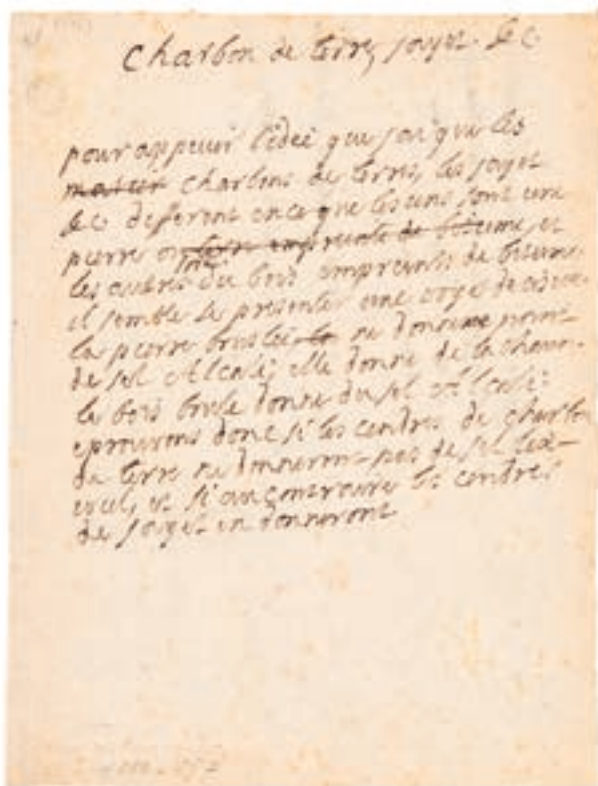 Charbon de terre, jayet. &c
pour appuier l'idée que j'ai que les
matier charbons de terres, les jayet
&c different en ce que les uns sont une
pierre ou terre empreinte de bitume, et
les autres du bois empreints de bitume
il semble se presenter une voye decisive.
la pierre bruslée ne donne point
de sel alcali; elle donne de la chaux.
le bois brule donne du sel alcali:
eprouvons donc si les cendres de charbon
de terre ne donneront pas de sel lixi-
viel, et si au contraire les cendres
de jayet en donneront